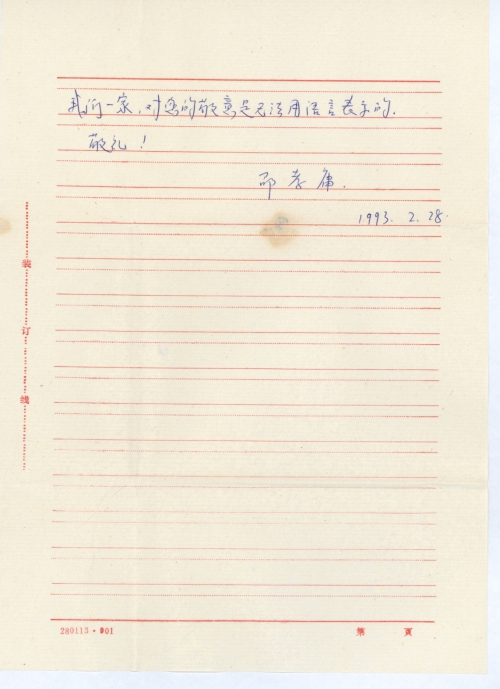 我们一家,对您的敬意是无法用语言表示的.
敬礼!
邵孝庸.
1993. 2. 28.
装订线
280115·001
第 页